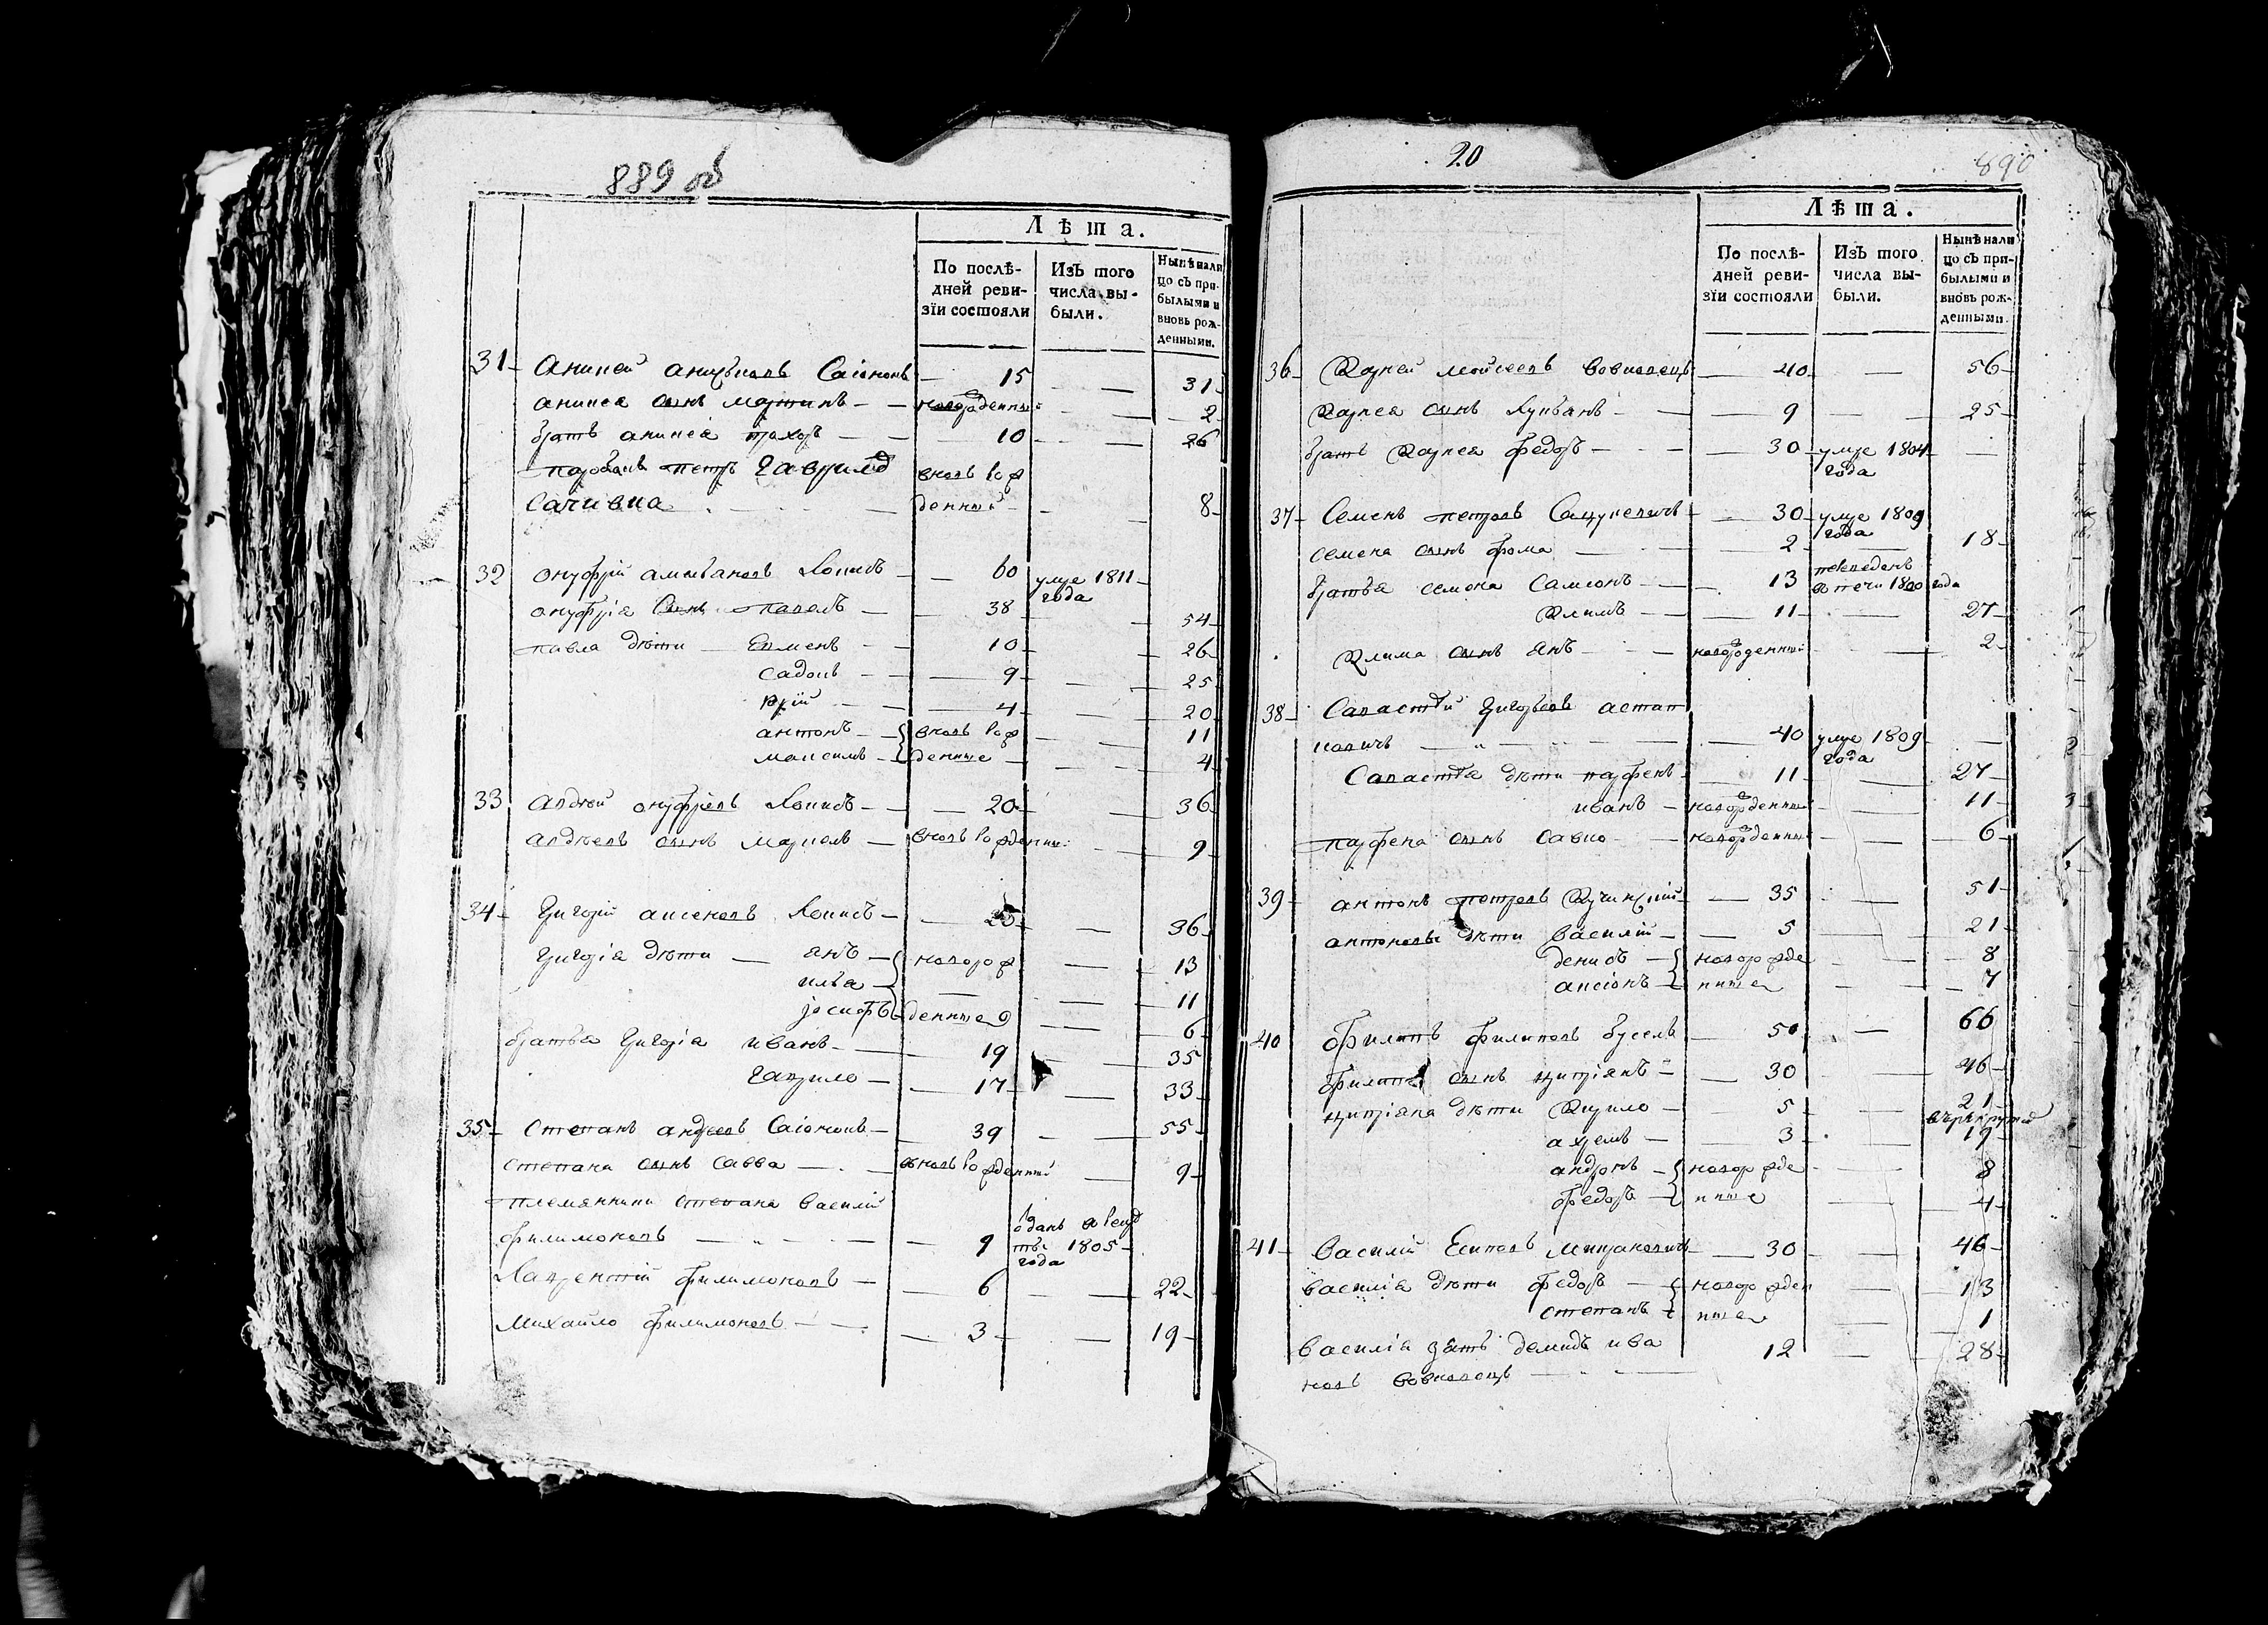 889 об
Лѣта.
По послѣ-
дней реви-
зіи состояли
Изъ того
числа вы-
были.
Нынѣ нали
цо съ при-
былыми и
вновь рож-
денными.
31 15 31
анинея сынъ мартинъ новорожденный 2
братъ анинея прохоръ 10 26
петръ гаврилъ вновь рож
денный 8
32 онуфрій 60 умре 1811
года
онуфрія сынъ павелъ 38 54
павла дѣти 10 26
садокъ 9 25
юрій 4 20
антонъ вновь рож 11
максимъ денные 4
33 авдѣй онуфріевъ 20 36
авдѣевъ сынъ маркелъ вновь рожденны 9
34 григорій аксеновъ 20 36
григорія дѣти янъ новорож 13
илья 11
іосифъ денные 6
братья григорія иванъ 19 35
гаврило 17 33
35 степанъ андреевъ 39 55
степана сынъ савва вновь рожденный 9
племянники степана василій
филимоновъ 9 отданъ в рекрут
ты 1805
года
лаврентій филимоновъ 6 22
михайло филимоновъ 3 19
20
890
Лѣта.
По послѣ-
дней реви-
зіи состояли
Изъ того
числа вы-
были.
Нынѣ нали
цо съ при-
былыми и
вновь рож-
денными.
36 корней мойсеевъ вовковецъ 40 56
корнея сынъ лукьянъ 9 25
братъ корнея федоръ 30 умре 1804
года
37 семенъ петровъ 30 умре 1809
года
семена сынъ фома 2 18
братья семена самсонъ 13 1800 года
климъ 11 27
клима сынъ янъ новорожденный 2
38 савастѣй григорьевъ астап
ковичъ 40 умре 1809
года
савастѣя дѣти парфенъ 11 27
иванъ новорожденный 11
парфена сынъ савко новорожденны 6
39 антонъ петровъ 35 51
антоновы дѣти василій 5 21
денисъ новорожде 8
нные 7
40 филипъ филиповъ бусель 50 66
филипа сынъ ципріянъ 30 46
ципріяна дѣти кирило 5 21
ахремъ 3 19
андронъ новорожде 8
федоръ нные 4
41 василій есиповъ 30 46
василія дѣти федоръ новорожден 13
степанъ ные 1
василія зять демидъ ива 12 28
новъ вовковецъ